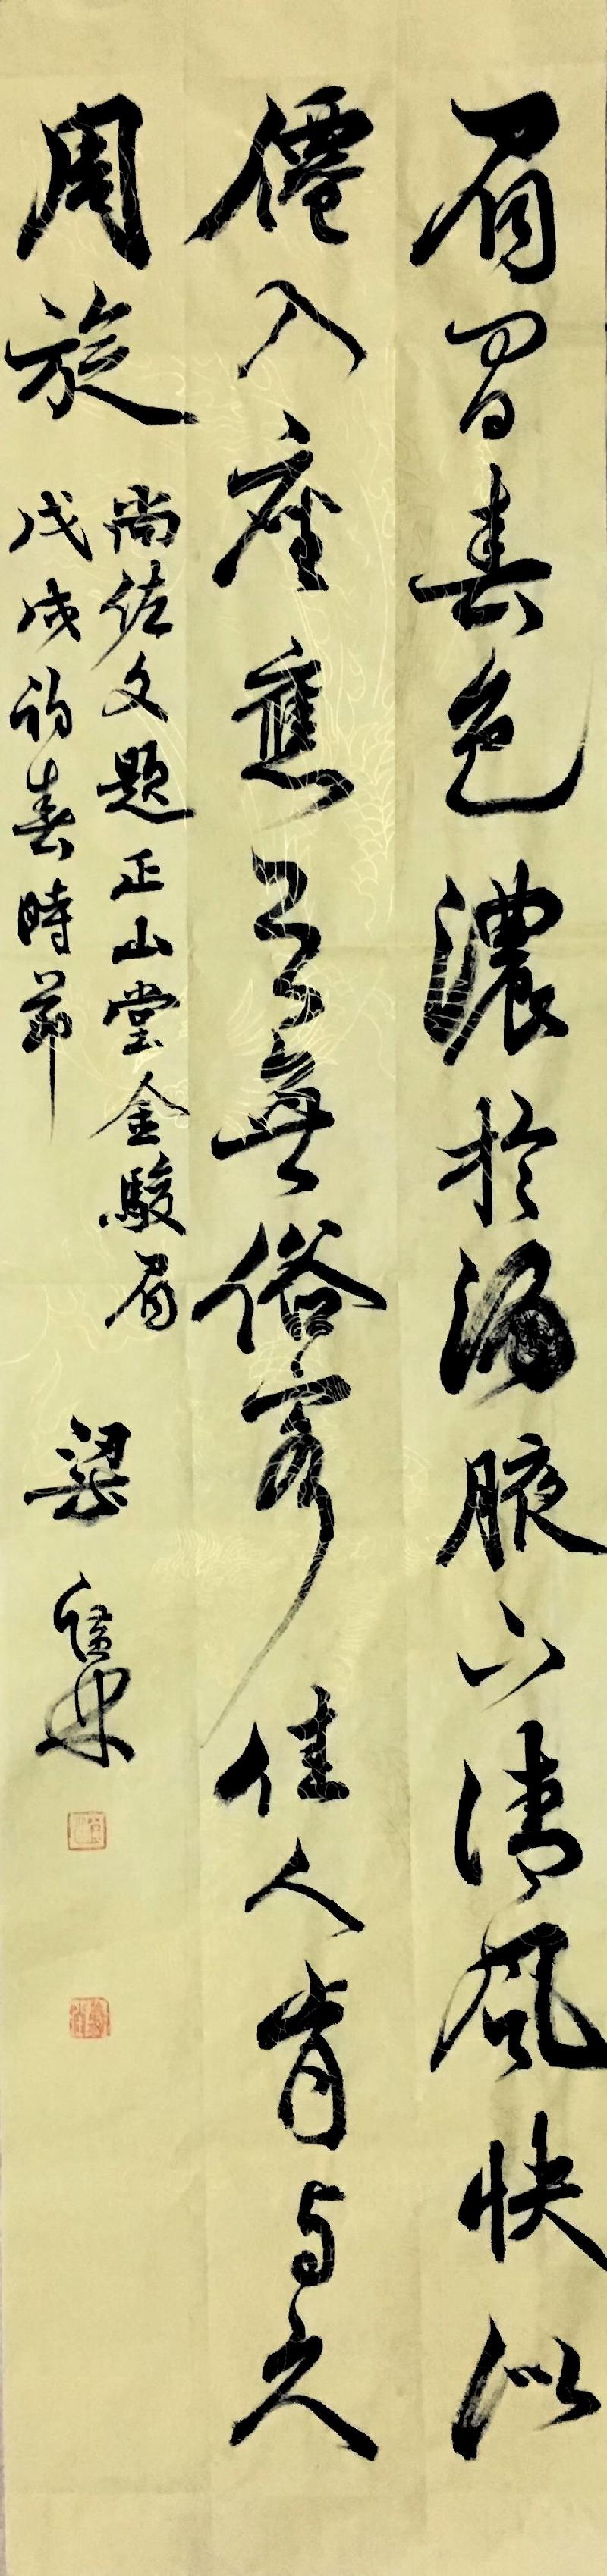 眉間春色濃於酒腋下清風快似
僊入座應是無俗客佳人肯与久
周旋
尚佐文題正山堂金駿眉
戊戌初春時節
梁